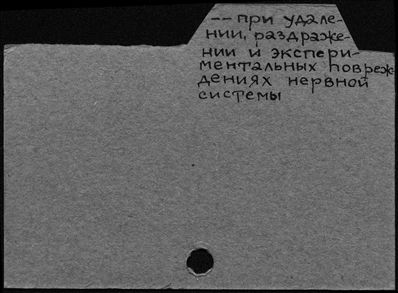 -- при удале-
нии, раздраже-
нии и экспери-
ментальных повреж-
дениях нервной
системы